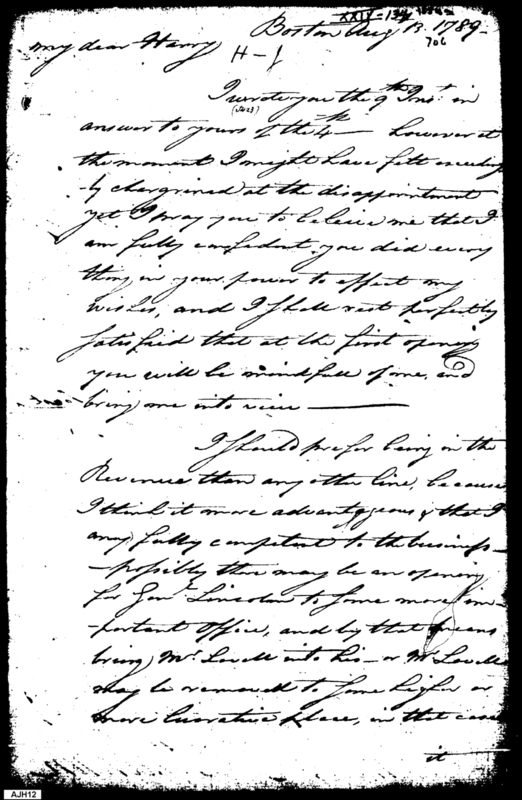 XXIV-134
Boston Aug 13. 1789-
706
My dear Harry
H-J
I wrote you the 9th Inst. in
answer to yours of the 4th — however at
the moment I might have felt exceeding
-ly chargrined at the disappointment
yet I pray you to beleive me that I
am fully confident you did every
thing in your power to effect my
wishes, and I shall rest perfectly
satisfied that at the first opening
you will be mindfull of me, and
bring me into view —
I should prefer being in the
Revenue than any other line, because
I think it more advantageous & that I
am fully competent to the business-
-possibly there may be an opening
for Genl. Lincoln to some more im-
-portant Office, and by that means
bring Mr. Lovell into his - or Mr Lovell
may be removed to some higher or
more lucrative place, in that case
it
AJH12